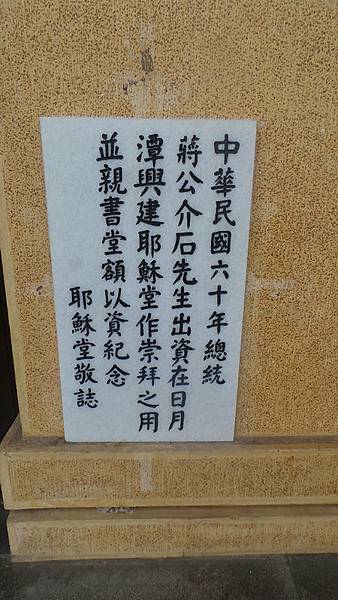 中華民國六十年總統
蔣公介石先生出資在日月
潭興建耶穌堂作崇拜之用
並親書堂額以資紀念
耶穌堂敬誌